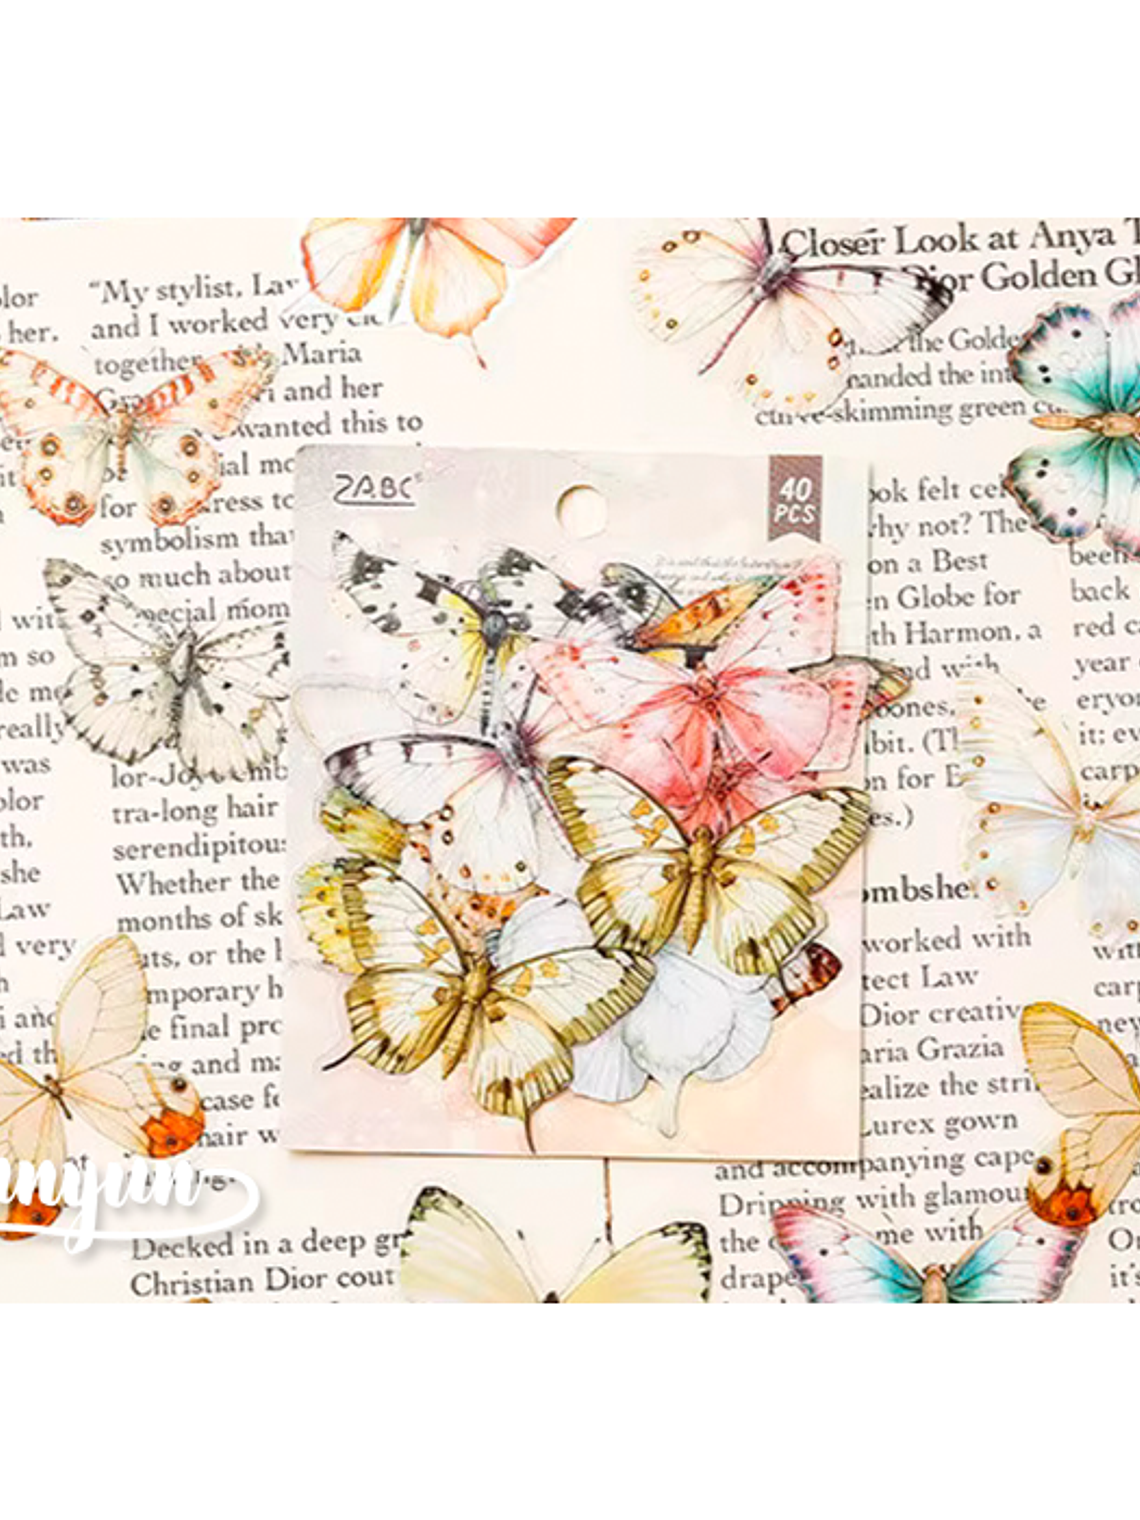 Closer Look at Anya T
ior Golden Gl
the Golde
manded the int
curve-skimming green
olor
her.
"My stylist, Lav
and I worked very
together
Maria
Gra
ri and her
wanted this to
ial mo
for
ress to
symbolism that
so much about
special mom
with
m so
le me
really
was
olor
th,
she
Law
l very
i and
ed th
tra-long hair
serendipitous
Whether the
months of sk
uts, or the l
mporary h
e final pro
and ma
case fo
hair w
Decked in a deep gr
Christian Dior cout
ZABC
40
PCS
ook felt cel
why not? The
on a Best
n Globe for
th Harmon, a
nd with
bones.
bit. (Th
on for E
es.)
ombshe
worked with
tect Law
Dior creativ
aria Grazia
ealize the stri
Lurex gown
and accompanying cape
Dripping with glamou
the
me with
drape
been
back
red c
year
eryo
it: ev
carp
with
carp
new
it's
nnyun